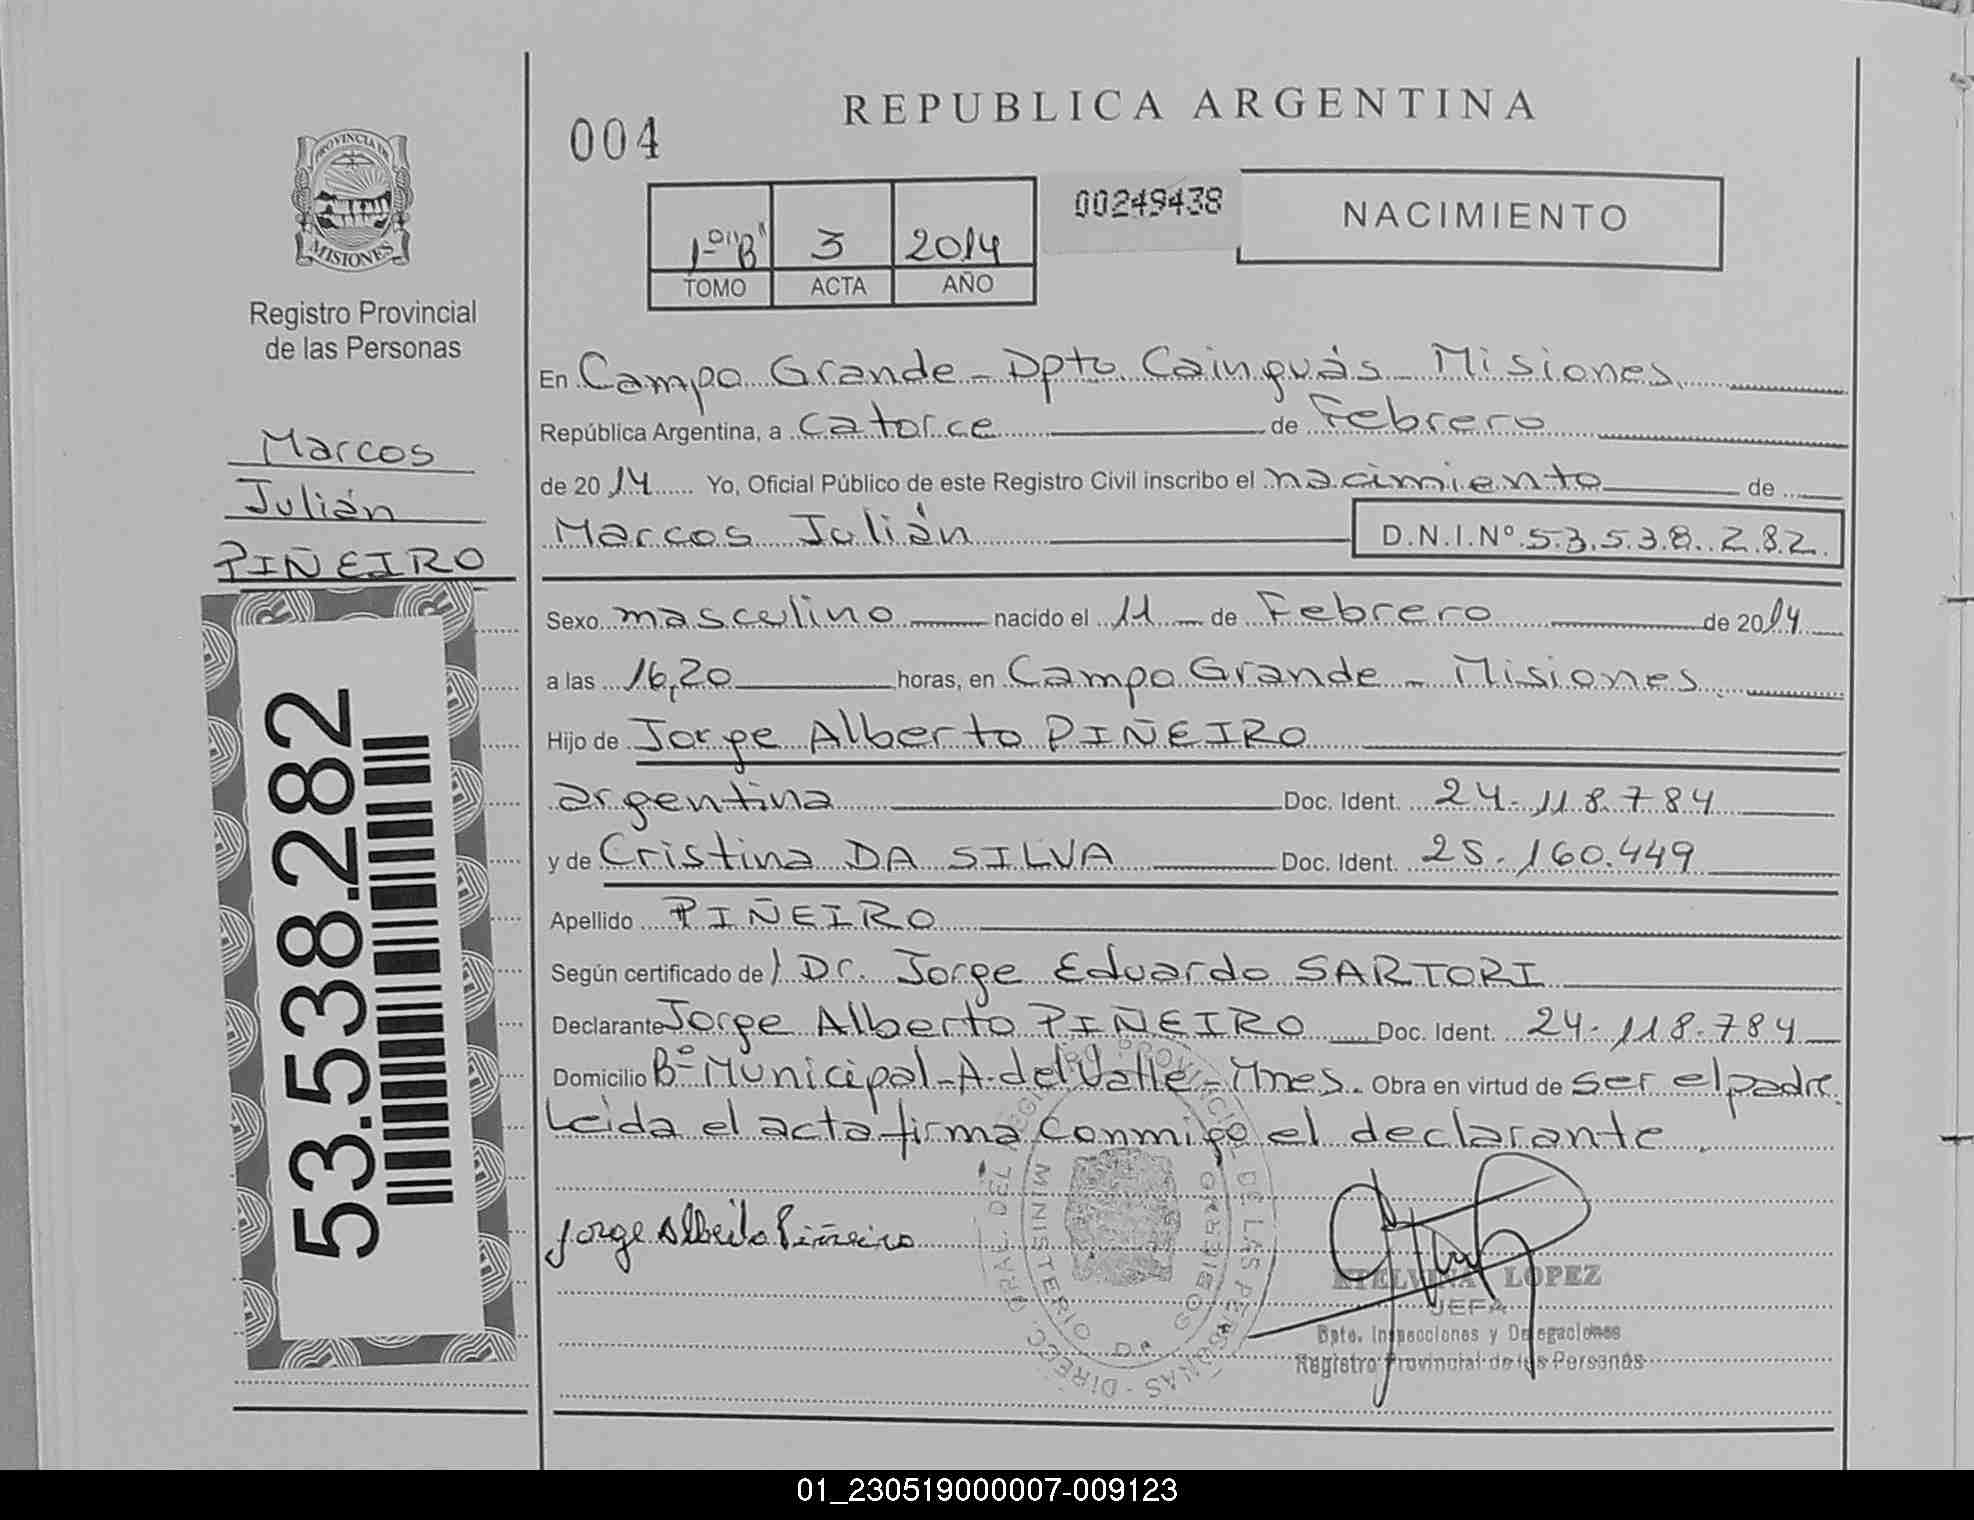 REPUBLICA ARGENTINA
004
PROVINCIA DE
MISIONES
Registro Provincial
de las Personas
1º "B" 3 2014
TOMO ACTA AÑO
00249438
NACIMIENTO
Marcos
Julián
PIÑEIRO
53.538.282
En Campo Grande - Dpto Cainguás - Misiones
República Argentina, a catorce de Febrero
de 2014 Yo, Oficial Público de este Registro Civil inscribo el nacimiento de
Marcos Julián D.N.I.Nº 53.538.282
Sexo masculino nacido el 11 de Febrero de 2014
a las 16,20 horas, en Campo Grande - Misiones
Hijo de Jorge Alberto PIÑEIRO
argentina Doc. Ident. 24.118.784
y de Cristina DA SILVA Doc. Ident. 25.160.449
Apellido PIÑEIRO
Según certificado de Dr. Jorge Eduardo SARTORI
Declarante Jorge Alberto PIÑEIRO Doc. Ident. 24.118.784
Domicilio Bº Municipal - A. del Valle - Mnes. Obra en virtud de ser el padre.
Leída el acta firma conmigo el declarante.
Jorge Alberto Piñeiro
ETELVINA LOPEZ
JEFA
Dpto. Inspecciones y Delegaciones
Registro Provincial de las Personas
MINISTERIO DE GOBIERNO
01_230519000007-009123